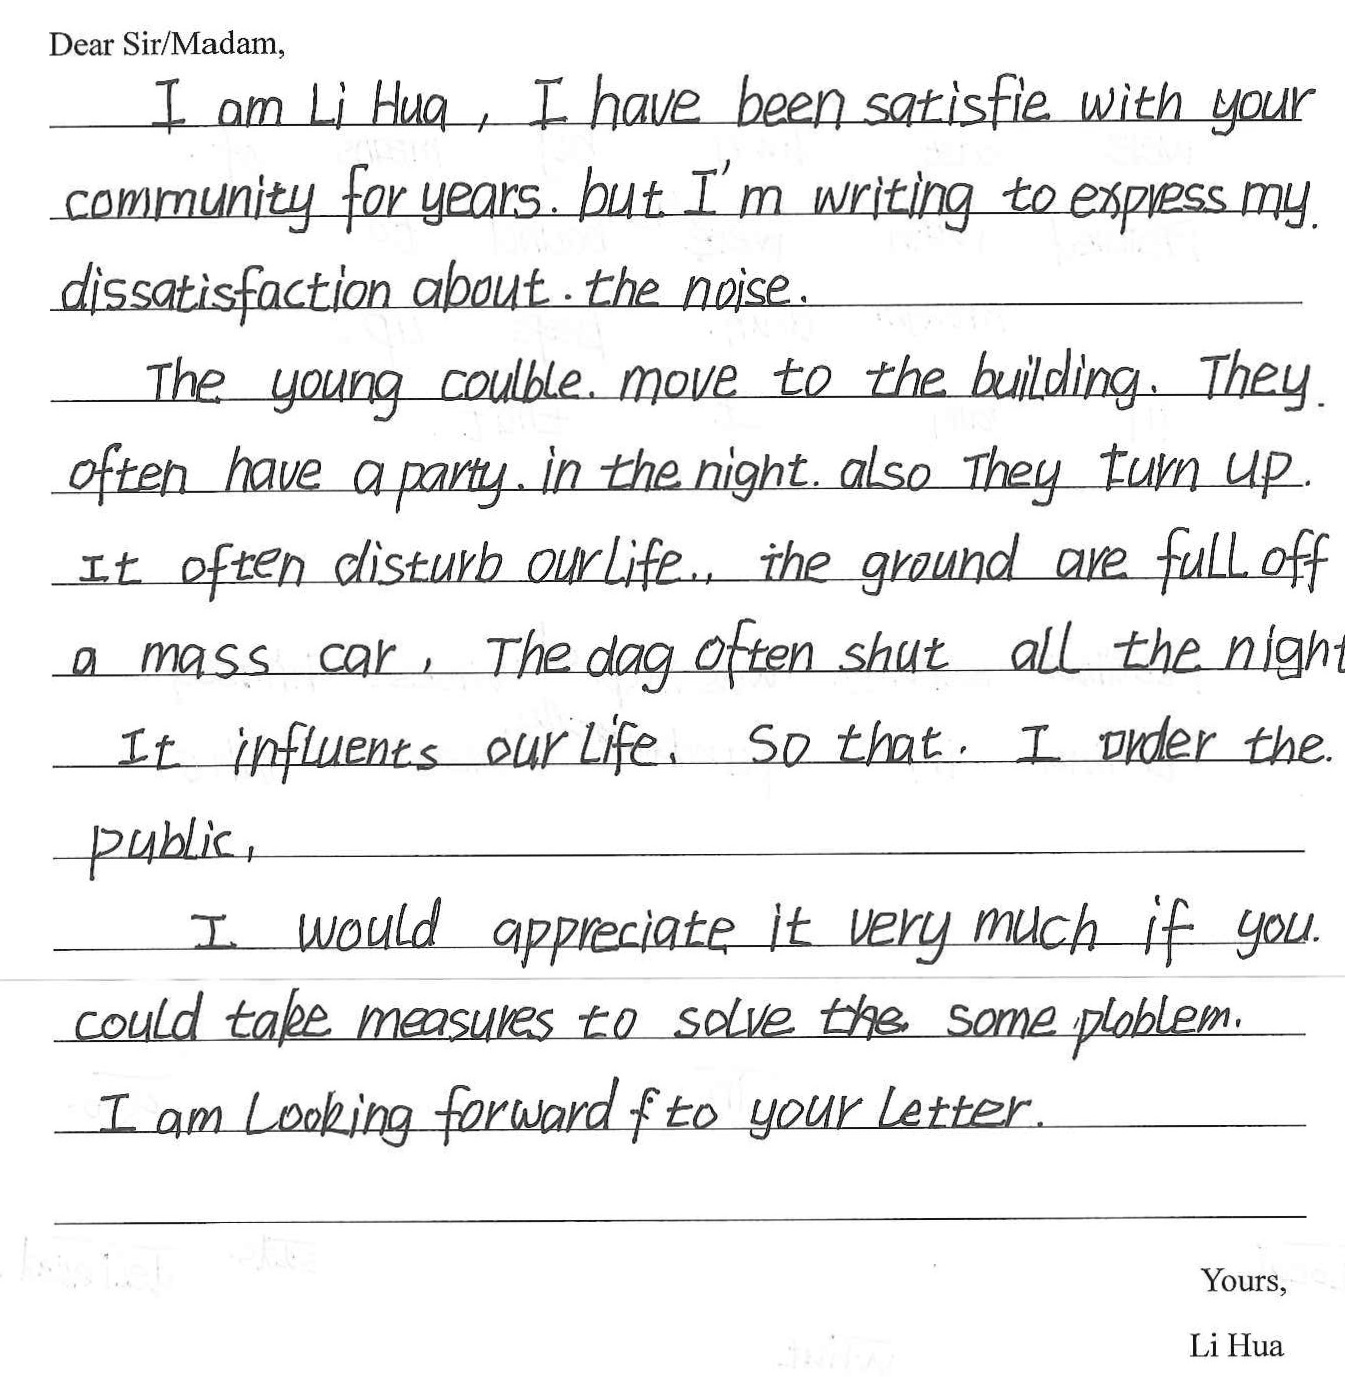 Dear Sir/Madam,
I am Li Hua, I have been satisfie with your
community for years. but I'm writing to express my.
dissatisfaction about. the noise.
The young coulble. move to the building. They.
often have a party. in the night. also They turn up.
It often disturb our life., the ground are full off
a mass car, The dag often shut all the night
It influents our life. So that. I order the.
public,
I would appreciate it very much if you.
could take measures to solve the some ploblem.
I am Looking forward f to your Letter.
Yours,
Li Hua